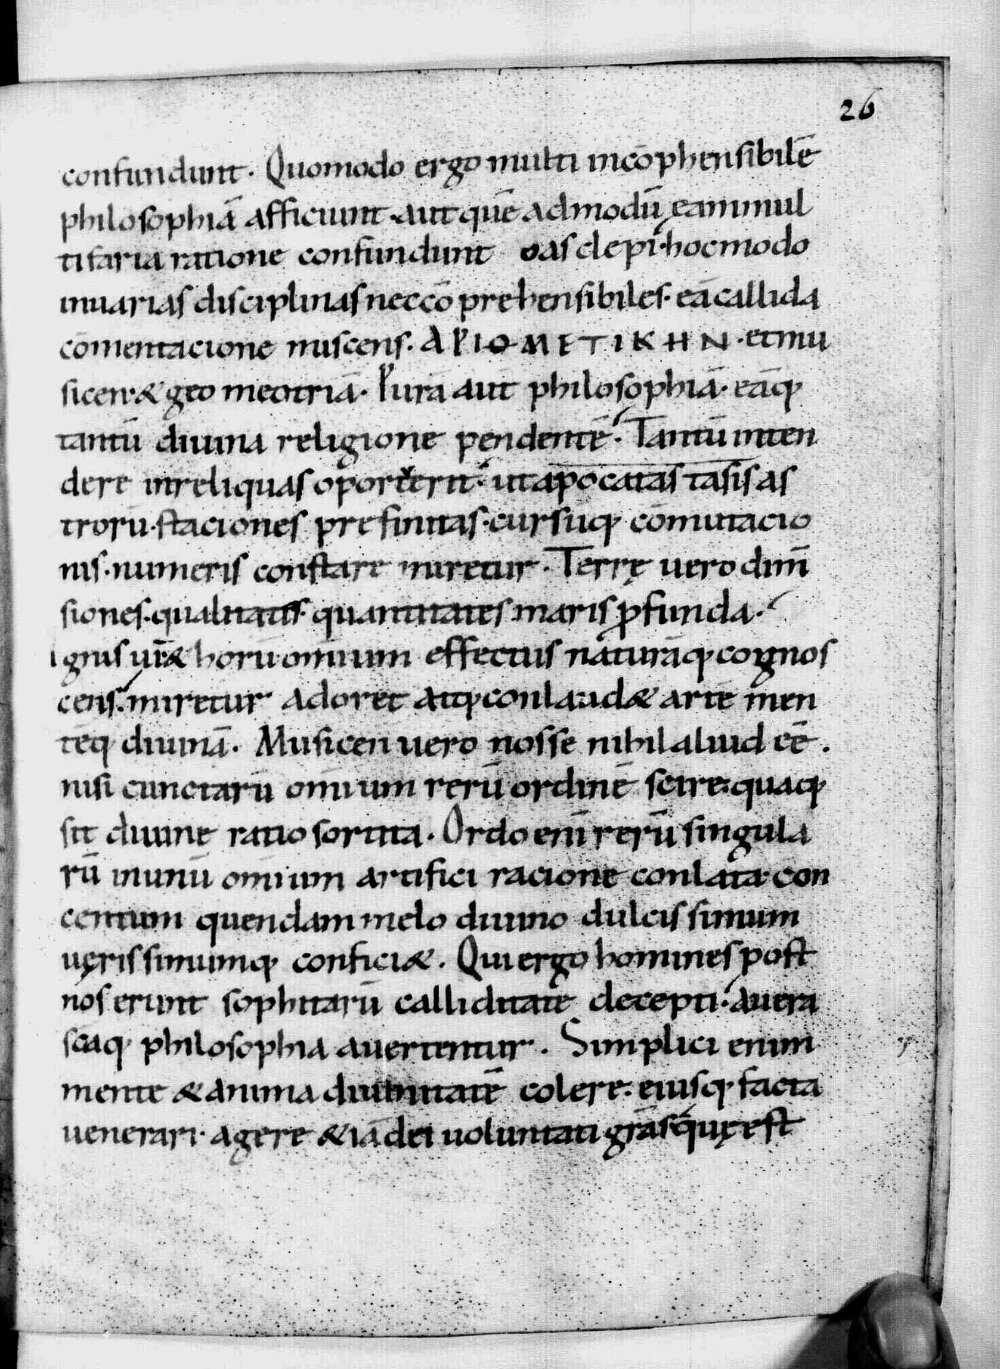 26
confundunt. Quomodo ergo multi incōphensibilē
philosophiā afficiunt. aut quē admodū eam mul
tifaria ratione confundunt o asclepi. hoc modo
in uarias disciplinas nec cōprehensibiles. eā callida
cōmentacione miscens. ΑΡΙΘΜΕΤΙΚΗΝ. et mu
sicen. & geo meotriā. Purā aut philosophiā. eāq;
tantū diuina religione pendentē. Tantū inten
dere in reliquas oporteret. ut apocatastasis as
trorū. staciones prefinitas. cursuq; cōmutacio
nis. numeris constare miretur. Terrę uero dim̄
siones. qualitatis. quantitates maris ꝓfunda.
ignis uī & horū omīum effectus naturāq; cognos
cens. miretur adoret atq; conlaudæ artē men
teq; diuinā. Musicen uero nosse nihil aliud eē.
nisi cunctarū omīum rerū ordinē scire. quaq;
sit diuine ratio sortita. Ordo enī rerū singula
rū in unū omīum artifici racione conlata. con
centum quendam melo diuino dulcissimum
uęrissimumq; conficiæ. Qui ergo homines post
nos erunt sophitarū calliditate decepti. a uera
scāq; philosophia auertentur. Simplici enim
mente & anima diuinitatē colere. eiusq; facta
uenerari. agere & iā dei uoluntati grās quę est